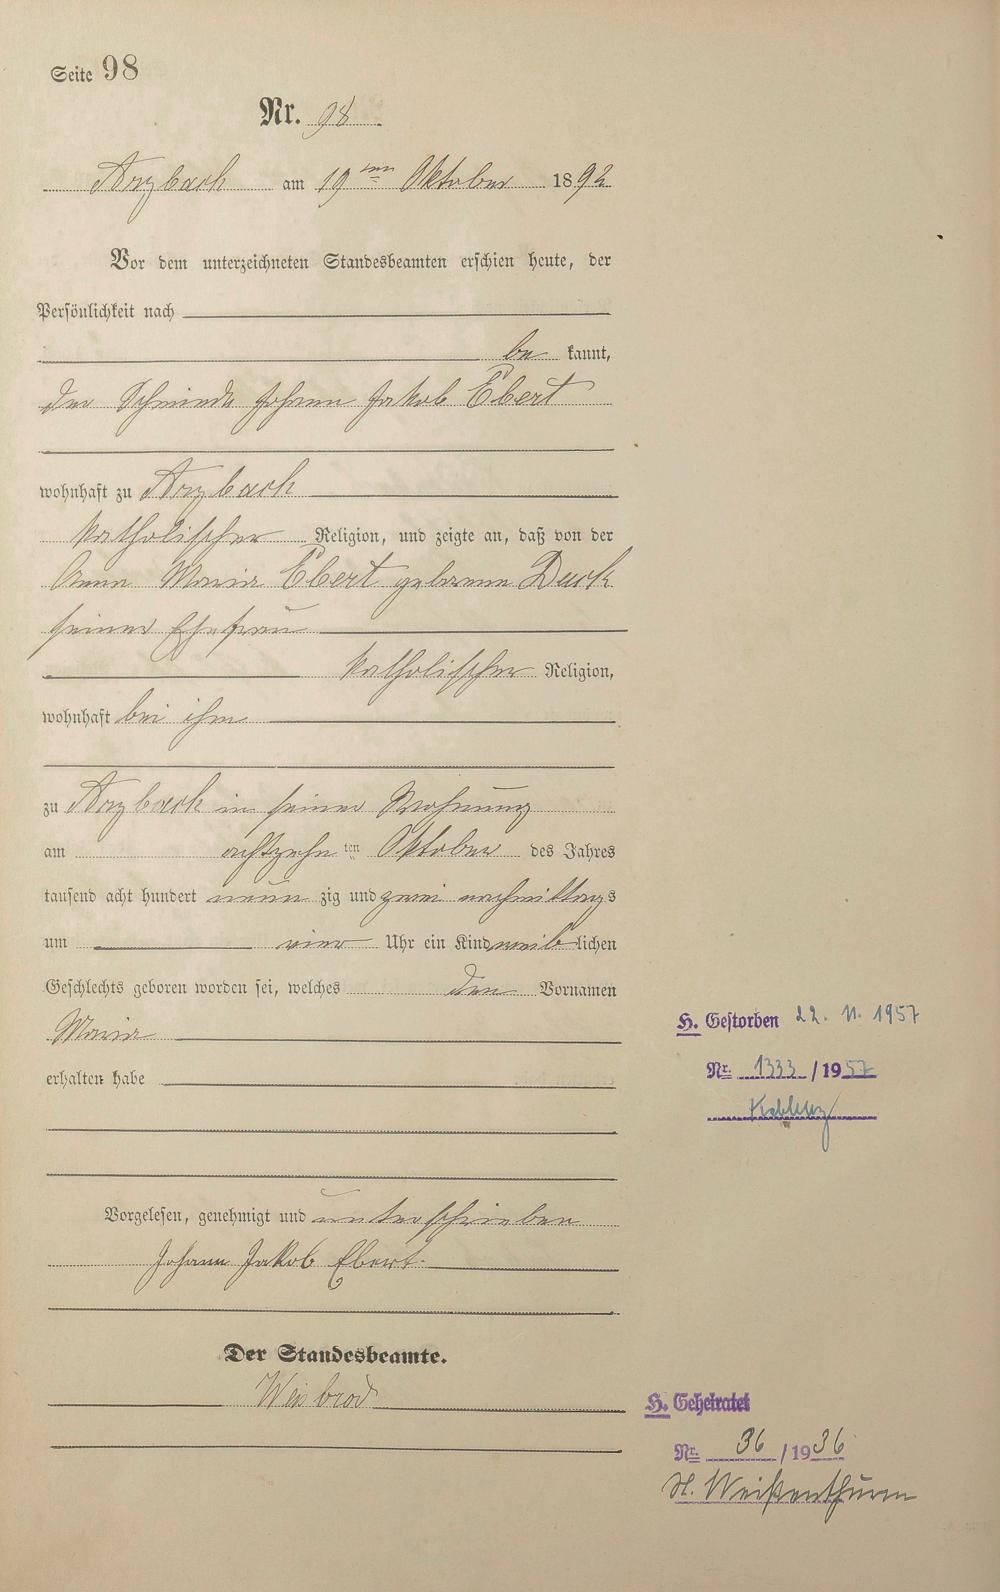 Seite 98
Nr. 98
Arzbach am 19ten Oktober 1892
Vor dem unterzeichneten Standesbeamten erschien heute, der
Persönlichkeit nach
be kannt,
der Schmiede Johann Jakob Ebert
wohnhaft zu Arzbach
katholischer Religion, und zeigte an, daß von der
Anna Maria Ebert geborenen Duck
seiner Ehefrau
katholischer Religion,
wohnhaft bei ihm
zu Arzbach in seiner Wohnung
am achtzehn ten Oktober des Jahres
tausend acht hundert neun zig und zwei nachmittags
um vier Uhr ein Kind weib lichen
Geschlechts geboren worden sei, welches den Vornamen
Maria
erhalten habe
H. Gestorben 22. 11. 1957
Nr. 1333 / 1957
Koblenz
Vorgelesen, genehmigt und unterschrieben
Johann Jakob Ebert.
Der Standesbeamte.
Weisbrod
H. Geheiratet
Nr. 36 / 1936
St. Weißenthurm